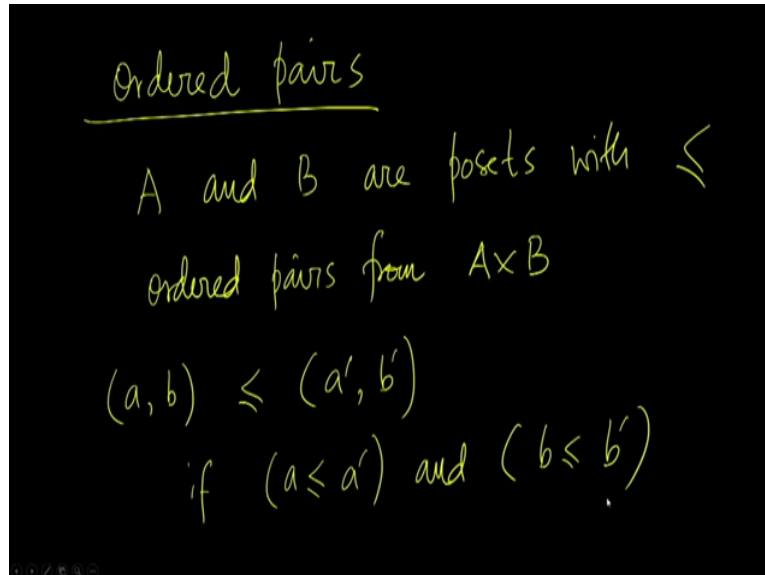 Ordered pairs
A and B are posets with ≤
ordered pairs from A×B
(a, b) ≤ (a', b')
if (a ≤ a') and (b ≤ b')